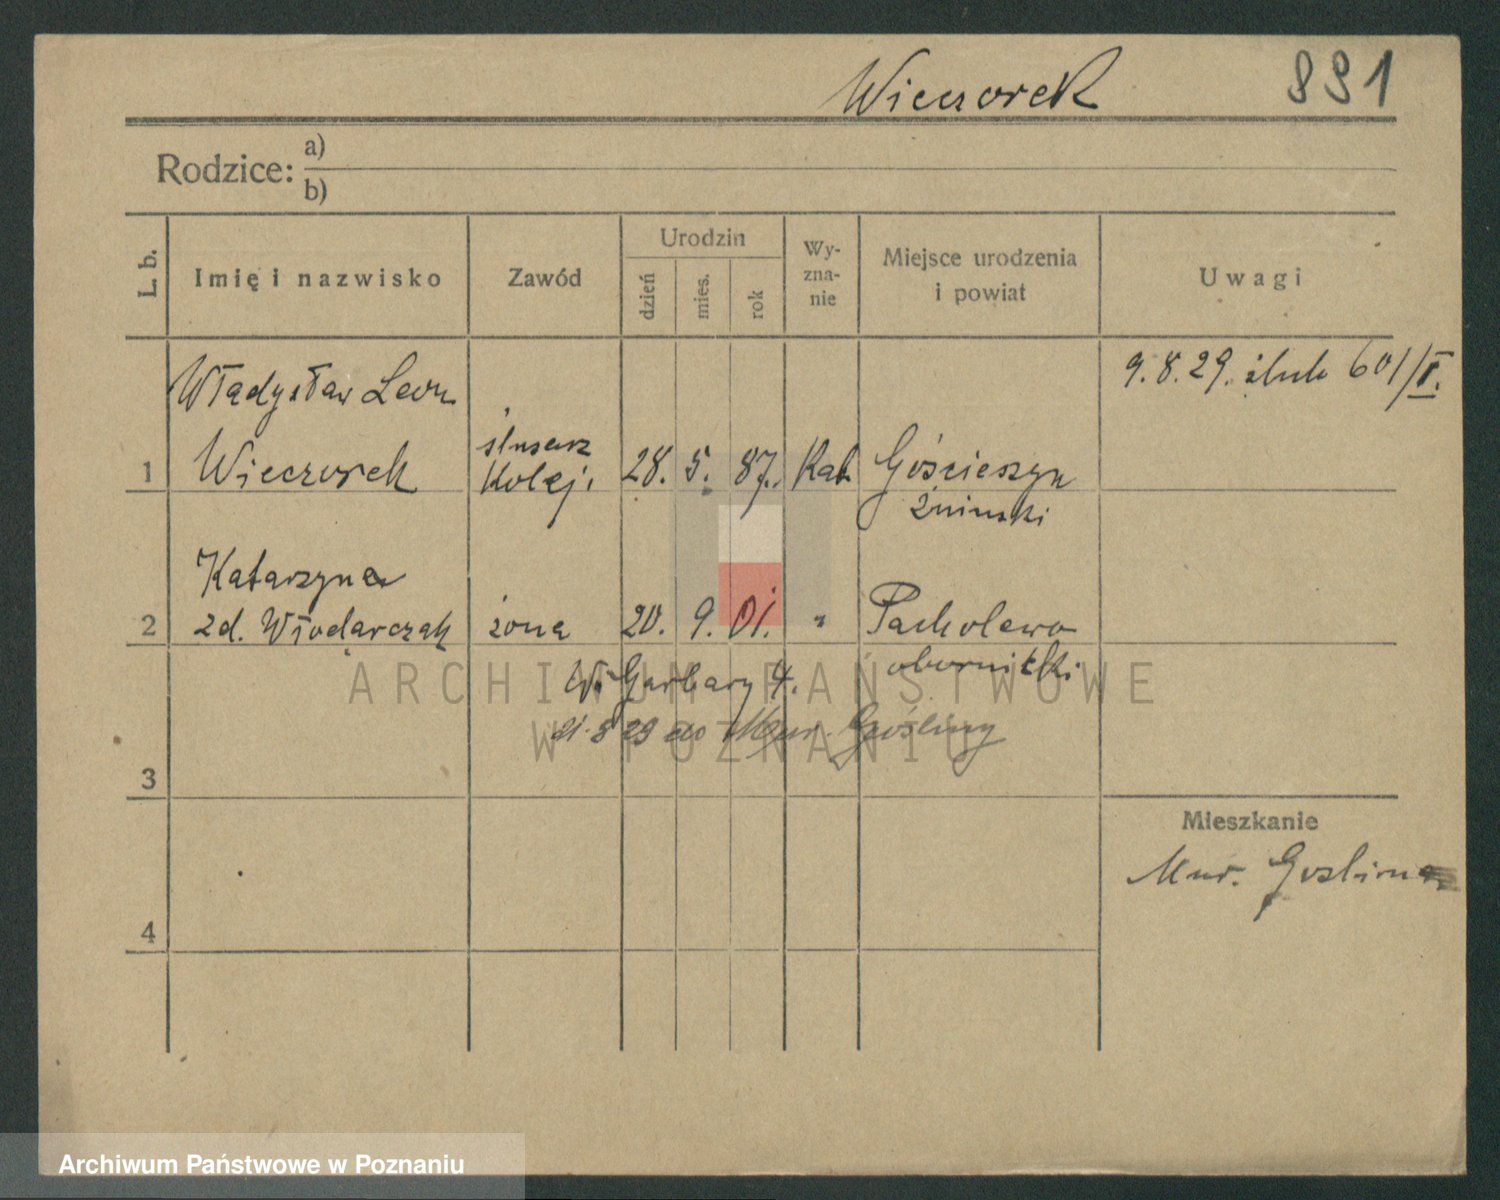 Wieczorek 891
Rodzice: a)
b)
L. b.
Imię i nazwisko
Zawód
Urodzin
dzień
mies.
rok
Wy-
zna-
nie
Miejsce urodzenia
i powiat
Uwagi
9. 8. 29. ślub 601/I.
Władysław Leon
1 Wieczorek
ślusarz
kolej.
28. 5. 87. Kat.
Gościeszyn
Żniński
Katarzyna
2 zd. Włodarczak
żona 20. 9. 01. "
Pacholewo
obornicki
W. Garbary 4.
21. 8 29 do Mur. Gośliny
3
4
Mieszkanie
Mur. Goslina
ARCHIWUM PAŃSTWOWE
W POZNANIU
Archiwum Państwowe w Poznaniu